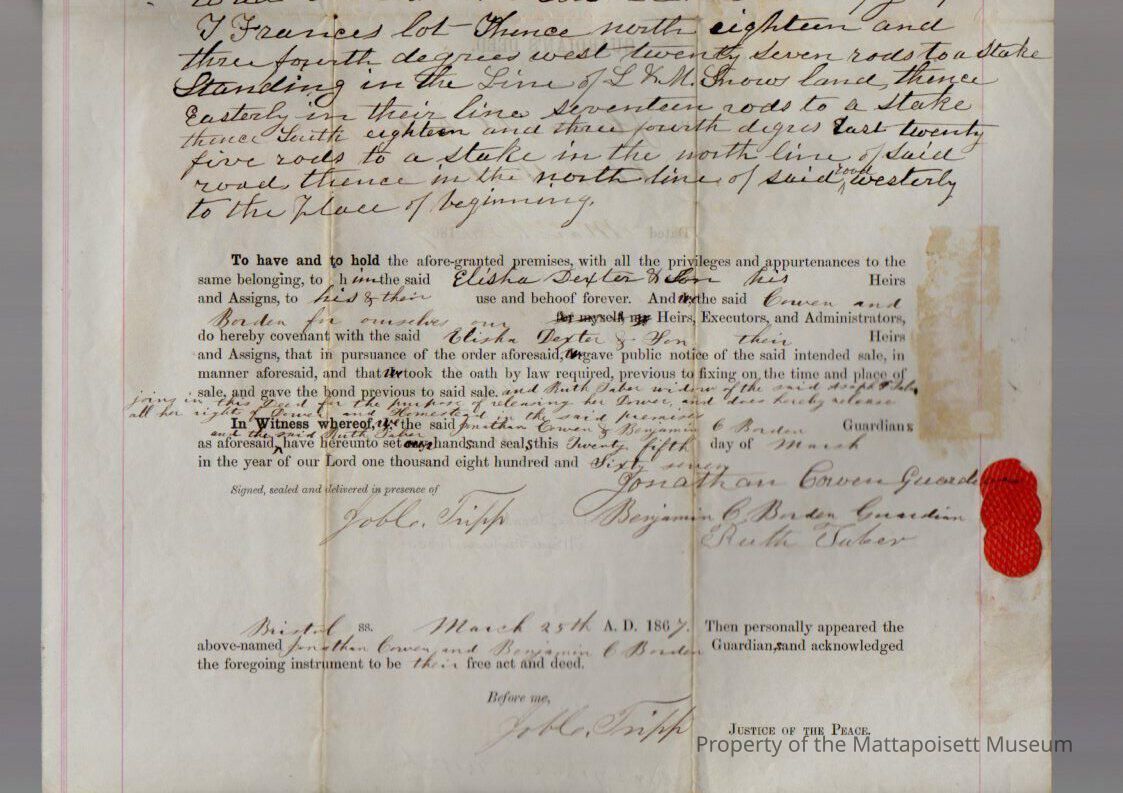 T Frances lot Thence north eighteen and
three fourth degrees west twenty seven rods to a stake
Standing in the Line of L & M. Snows land, thence
Easterly in their line seventeen rods to a stake
thence South eighteen and three fourth degres East twenty
five rods to a stake in the north line of said
road, thence in the north line of said road westerly
to the Place of beginning.
Dated
To have and to hold the afore-granted premises, with all the privileges and appurtenances to the
same belonging, to him the said Elisha Dexter & Son his Heirs
and Assigns, to his & their use and behoof forever. And we the said Cowen and
Borden for ourselves our for myself my Heirs, Executors, and Administrators,
do hereby covenant with the said Elisha Dexter & Son their Heirs
and Assigns, that in pursuance of the order aforesaid, we gave public notice of the said intended sale, in
manner aforesaid, and that we took the oath by law required, previous to fixing on the time and place of
sale, and gave the bond previous to said sale. and Ruth Taber widow of the said Joseph T Taber
joing in this Deed for the purpose of releasing her Dower, and does hereby release
all her right of Dower and Homestead in the said premises
In Witness whereof, we the said Jonathan Cowen & Benjamin C Borden Guardians
and the said Ruth Taber
as aforesaid, have hereunto set our hands and seals this Twenty fifth day of March
in the year of our Lord one thousand eight hundred and Sixty seven
Jonathan Cowen Guardian
Signed, sealed and delivered in presence of
Job C. Tripp
Benjamin C Borden Guardian
Ruth Taber
Bristol ss. March 25th A. D. 1867. Then personally appeared the
above-named Jonathan Cowen and Benjamin C Borden Guardian,s and acknowledged
the foregoing instrument to be their free act and deed.
Before me,
Job C. Tripp JUSTICE OF THE PEACE.
Property of the Mattapoisett Museum